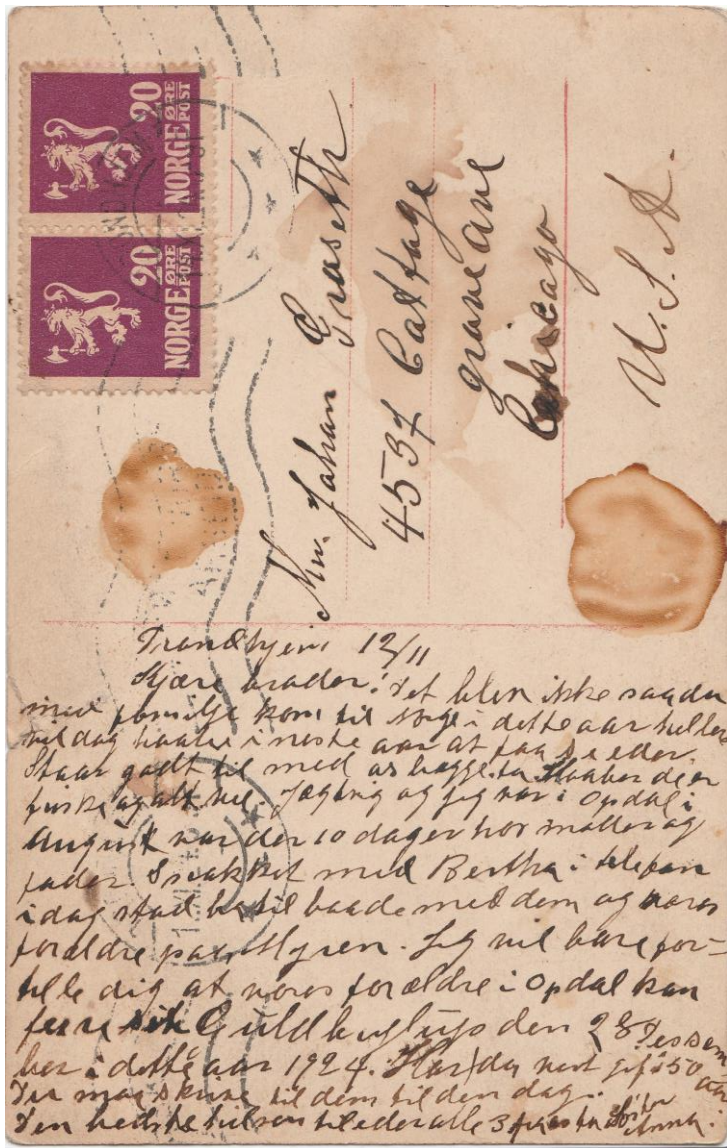 NORGE 20 ØRE POST
NORGE 20 ØRE POST
Mr. Johan Graseth
4537 Cattage
grove ave
Chicago
U.S.A.
Trondhjem 12/11
Kjære broder! det blev ikke saa du
med familje kom til Norge i dette aar heller
vil dog haabe i neste aar at faa se eder.
Staar godt til med os begge to Haaber de er
friske og alt vel. og jeg var i Opdal i
August var der 10 dager hos moder og
fader. Snakket med Bertha i telefon
i dag stod bra til baade med dem og vores
forældre paa Myren. Jeg vil bare for-
telle dig at vores forældre i Opdal kan
feire sit Guldbryllup den 28 Dessem
ber i dette aar 1924. Har da vert gift 50 aar
Du maa skrive til dem til den dag.
Den hedste hilsen til eder alle 3 fra Søster
Anna.